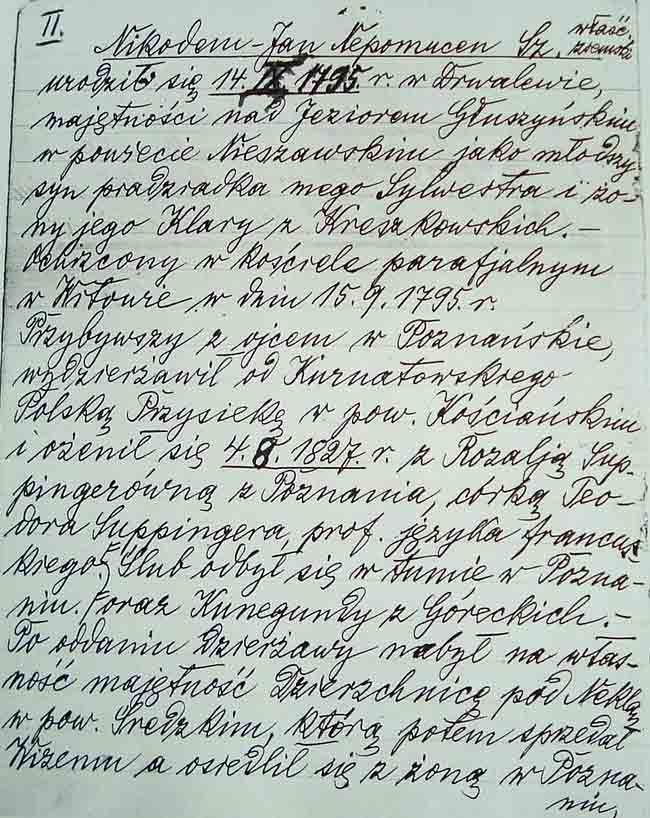 II.
Nikodem-Jan Nepomucen Sz. właść. ziemski
urodził się 14. IX. 1795. r. w Drwalewie,
majętności nad Jeziorem Głuszyńskim
w powiecie Nieszawskim jako młodszy
syn pradziadka mego Sylwestra i żo-
ny jego Klary z Kreszkowskich.-
Ochrzcony w kościele parafjalnym
w Witowie w dniu 15.9.1795. r.
Przybywszy z ojcem w Poznańskie,
wydzierżawił od Kurnatowskiego
Polską Przysiekę w pow. Kościańskim
i ożenił się 4.8. 1827. r. z Rozalją Sup-
pingerówną z Poznania, córką Teo-
dora Suppingera, prof. języka francus
kiego. Ślub odbył się w tumie w Pozna-
niu. oraz Kunegundy z Góreckich.-
Po oddaniu dzierżawy nabył na włas-
ność majętność Dzierzchnicę pod Neklą
w pow. Średzkim, którą potem sprzedał
a osiedlił się z żoną w Pozna-
niu,